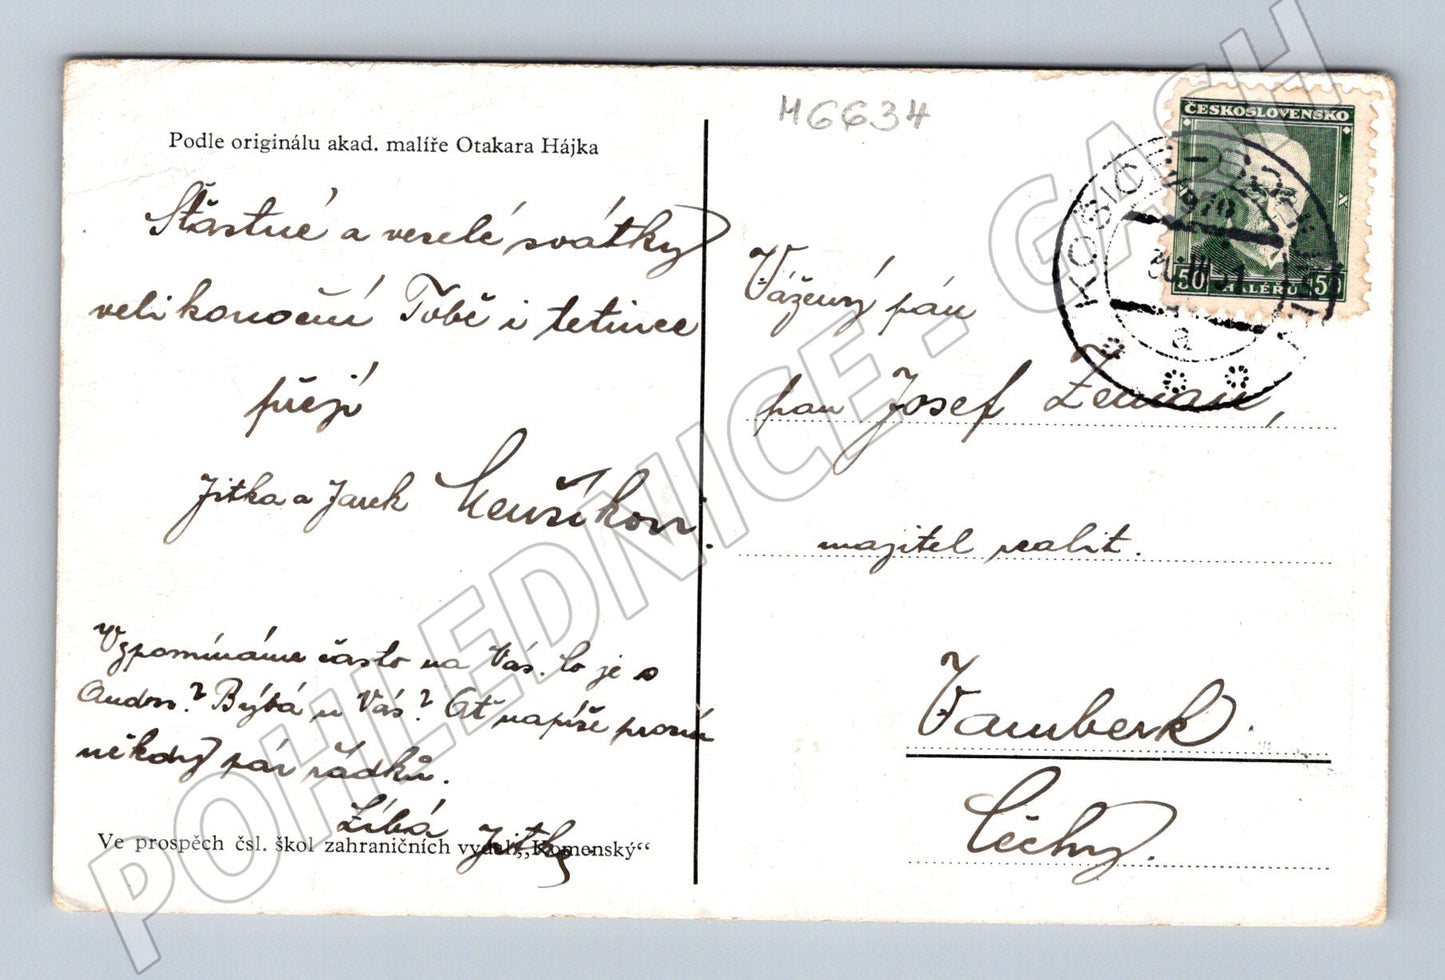 M6634
Podle originálu akad. malíře Otakara Hájka
Šťastné a veselé svátky
velikonoční Tobě i tetince
přejí
Jitka a Jarek
Vzpomínáme často na Vás. Co je s
? Bývá u Vás? Ať napíše prosím
někdy pár řádků.
Líbá Jitka
Ve prospěch čsl. škol zahraničních vydal „Komenský“
ČESKOSLOVENSKO
50 HALÉŘŮ 50
KOŠICE
Vážený pán
pan Josef Zeman,
majitel realit.
Vamberk.
Čechy.
POHLEDNICE - GASH